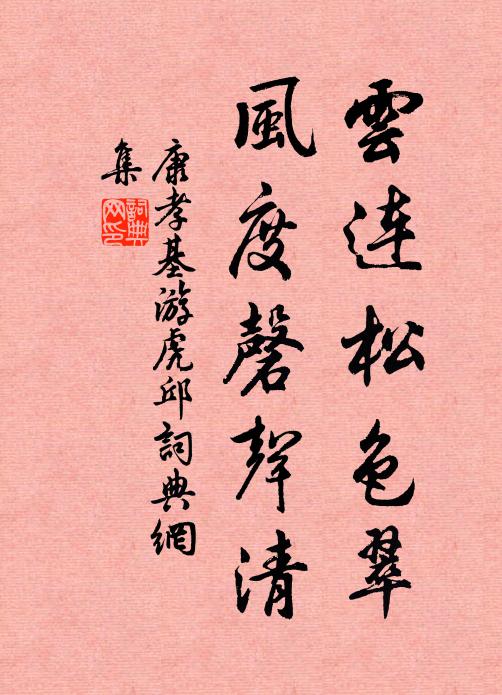 雲連松色翠
風度磬聲清
康孝基游虎邱詞典網
集
詞典
网印